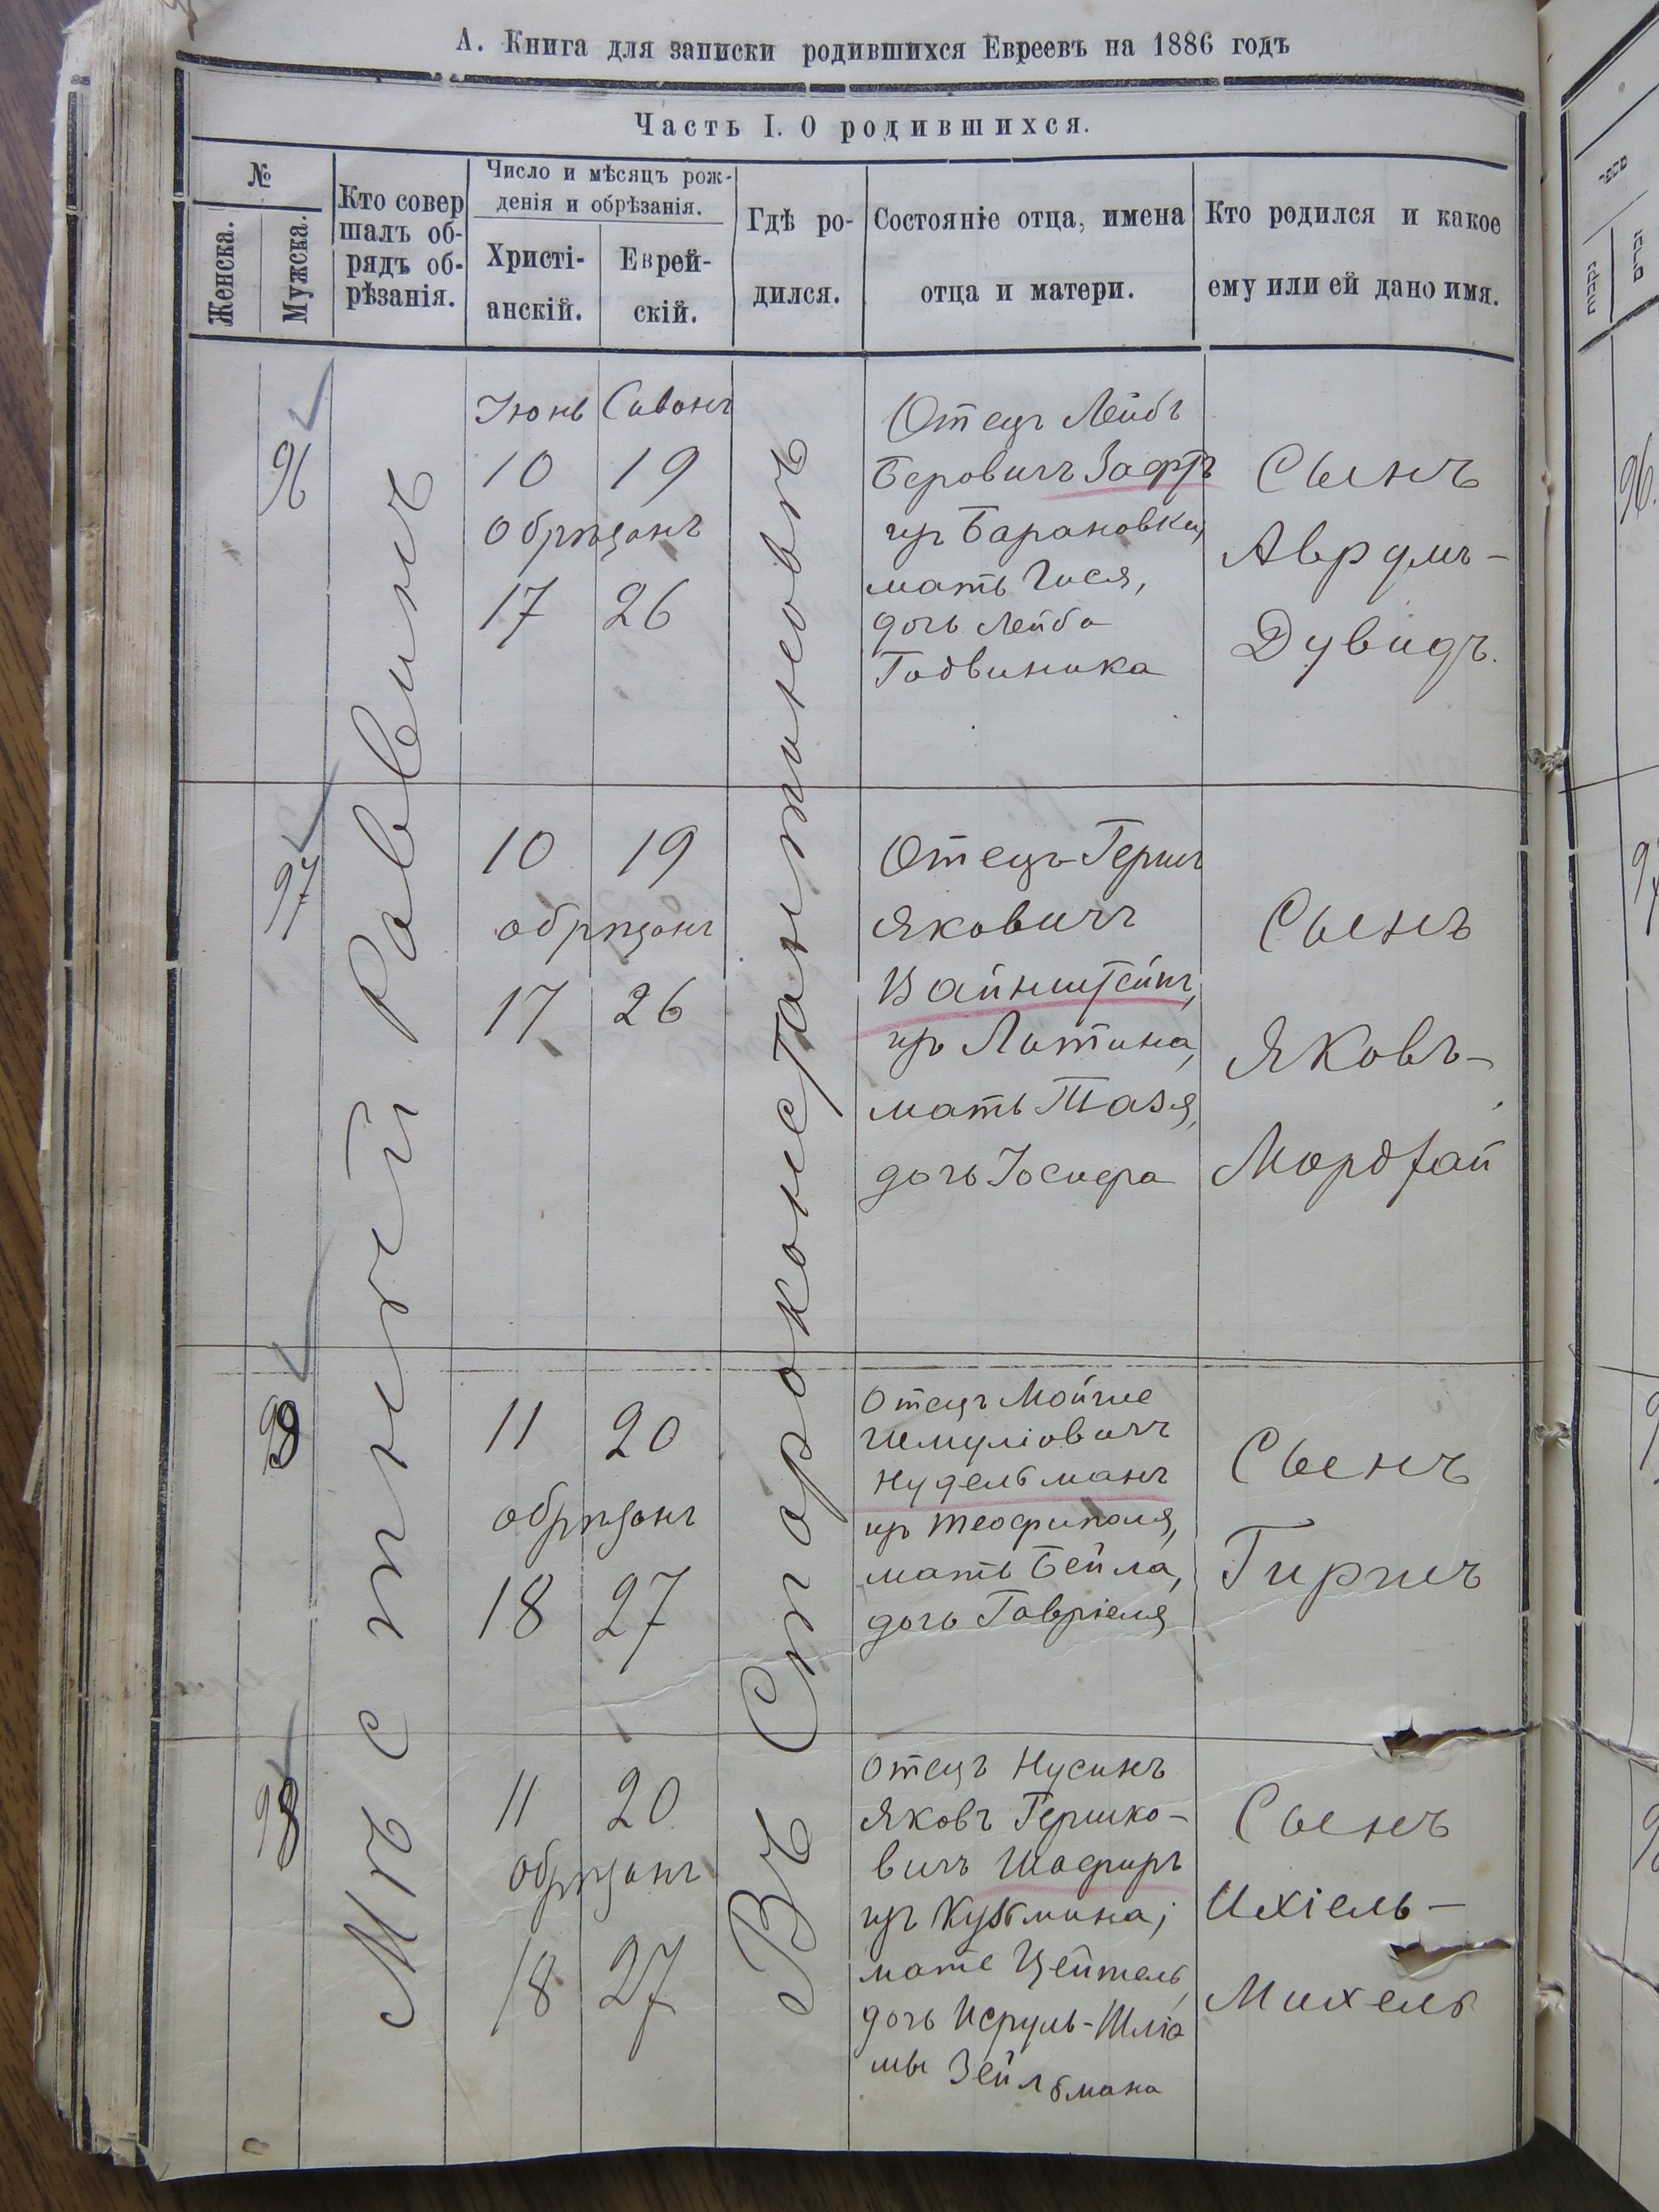 А. Книга для записки родившихся Евреевъ на 1886 годъ
Часть I. О родившихся.
№
Женска.
Мужска.
Кто совер
шалъ об-
рядъ об-
рѣзанія.
Число и мѣсяцъ рож-
денія и обрѣзанія.
Христі-
анскій.
Еврей-
скій.
Гдѣ ро-
дился.
Состояніе отца, имена
отца и матери.
Кто родился и какое
ему или ей дано имя.
Мѣстный Раввинъ
Въ Староконстантиновѣ
96
Іюнь Сивонъ
10 19
обрѣзанъ
17 26
Отецъ Лейбъ
Беровичъ Зафтъ
изъ Барановки,
мать Гися,
дочь Лейба
Годвиника
Сынъ
Аврумъ-
Дувидъ.
97
10 19
обрѣзанъ
17 26
Отецъ Гершъ
Яковичъ
Вайнштейнъ,
изъ Литина,
мать Тазя,
дочь Іосифа
Сынъ
Яковъ-
Мордхай
11 20
обрѣзанъ
18 27
Отецъ Мойше
Шмуліовичъ
Нудельманъ
изъ Теофиполя,
мать Бейла,
дочь Гавріеля
Сынъ
Гиршъ
98
11 20
обрѣзанъ
18 27
Отецъ Нусинъ
Яковъ Гершко-
вичъ Шафиръ
изъ Кузьмина;
мать Цейтель,
дочь Исруль-Шліо
мы Зейльмана
Сынъ
Ихіель-
Михель
96.